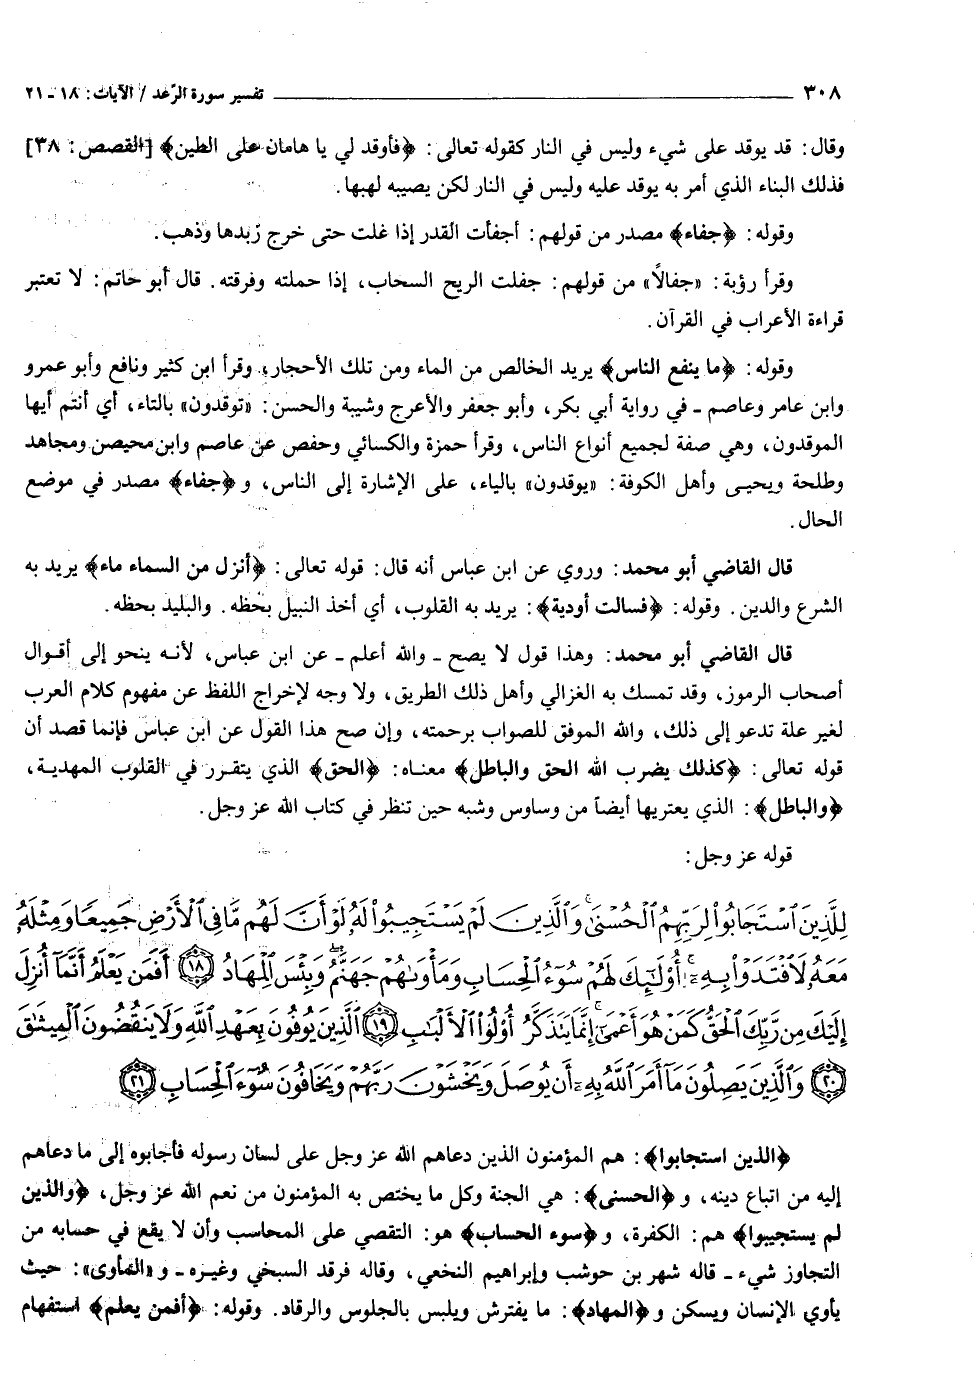 ٣٠٨ ــــــ تفسير سورة الرّعد / الآيات: ١٨ ـ ٢١
وقال: قد يوقد على شيء وليس في النار كقوله تعالى: ﴿فأوقد لي يا هامان على الطين﴾ [القصص: ٣٨]
فذلك البناء الذي أمر به يوقد عليه وليس في النار لكن يصيبه لهبها.
وقوله: ﴿جفاء﴾ مصدر من قولهم: أجفأت القدر إذا غلت حتى خرج زبدها وذهب.
وقرأ رؤبة: «جفالاً» من قولهم: جفلت الريح السحاب، إذا حملته وفرقته. قال أبو حاتم: لا تعتبر
قراءة الأعراب في القرآن.
وقوله: ﴿ما ينفع الناس﴾ يريد الخالص من الماء ومن تلك الأحجار، وقرأ ابن كثير ونافع وأبو عمرو
وابن عامر وعاصم ـ في رواية أبي بكر، وأبو جعفر والأعرج وشيبة والحسن: «توقدون» بالتاء، أي أنتم أيها
الموقدون، وهي صفة لجميع أنواع الناس، وقرأ حمزة والكسائي وحفص عن عاصم وابن محيصن ومجاهد
وطلحة ويحيى وأهل الكوفة: «يوقدون» بالياء، على الإشارة إلى الناس، و ﴿جفاء﴾ مصدر في موضع
الحال.
قال القاضي أبو محمد: وروي عن ابن عباس أنه قال: قوله تعالى: ﴿أنزل من السماء ماء﴾ يريد به
الشرع والدين. وقوله: ﴿فسالت أودية﴾: يريد به القلوب، أي أخذ النبيل بحظه. والبليد بحظه.
قال القاضي أبو محمد: وهذا قول لا يصح ـ والله أعلم ـ عن ابن عباس، لأنه ينحو إلى أقوال
أصحاب الرموز، وقد تمسك به الغزالي وأهل ذلك الطريق، ولا وجه لإخراج اللفظ عن مفهوم كلام العرب
لغير علة تدعو إلى ذلك، والله الموفق للصواب برحمته، وإن صح هذا القول عن ابن عباس فإنما قصد أن
قوله تعالى: ﴿كذلك يضرب الله الحق والباطل﴾ معناه: ﴿الحق﴾ الذي يتقرر في القلوب المهدية،
﴿والباطل﴾: الذي يعتريها أيضاً من وساوس وشبه حين تنظر في كتاب الله عز وجل.
قوله عز وجل:
لِلَّذِينَ ٱسْتَجَابُوا۟ لِرَبِّهِمُ ٱلْحُسْنَىٰ ۚ وَٱلَّذِينَ لَمْ يَسْتَجِيبُوا۟ لَهُۥ لَوْ أَنَّ لَهُم مَّا فِى ٱلْأَرْضِ جَمِيعًا وَمِثْلَهُۥ
مَعَهُۥ لَٱفْتَدَوْا۟ بِهِۦٓ ۚ أُو۟لَـٰٓئِكَ لَهُمْ سُوٓءُ ٱلْحِسَابِ وَمَأْوَىٰهُمْ جَهَنَّمُ ۖ وَبِئْسَ ٱلْمِهَادُ ﴿١٨﴾ أَفَمَن يَعْلَمُ أَنَّمَآ أُنزِلَ
إِلَيْكَ مِن رَّبِّكَ ٱلْحَقُّ كَمَنْ هُوَ أَعْمَىٰٓ ۚ إِنَّمَا يَتَذَكَّرُ أُو۟لُوا۟ ٱلْأَلْبَـٰبِ ﴿١٩﴾ ٱلَّذِينَ يُوفُونَ بِعَهْدِ ٱللَّهِ وَلَا يَنقُضُونَ ٱلْمِيثَـٰقَ
﴿٢٠﴾ وَٱلَّذِينَ يَصِلُونَ مَآ أَمَرَ ٱللَّهُ بِهِۦٓ أَن يُوصَلَ وَيَخْشَوْنَ رَبَّهُمْ وَيَخَافُونَ سُوٓءَ ٱلْحِسَابِ ﴿٢١﴾
﴿الذين استجابوا﴾: هم المؤمنون الذين دعاهم الله عز وجل على لسان رسوله فأجابوه إلى ما دعاهم
إليه من اتباع دينه، و ﴿الحسنى﴾: هي الجنة وكل ما يختص به المؤمنون من نعم الله عز وجل، ﴿والذين
لم يستجيبوا﴾ هم: الكفرة، و ﴿سوء الحساب﴾ هو: التقصي على المحاسب وأن لا يقع في حسابه من
التجاوز شيء ـ قاله شهر بن حوشب وإبراهيم النخعي، وقاله فرقد السبخي وغيره ـ و «المأوى»: حيث
يأوي الإنسان ويسكن و ﴿المهاد﴾: ما يفترش ويلبس بالجلوس والرقاد. وقوله: ﴿أفمن يعلم﴾ استفهام